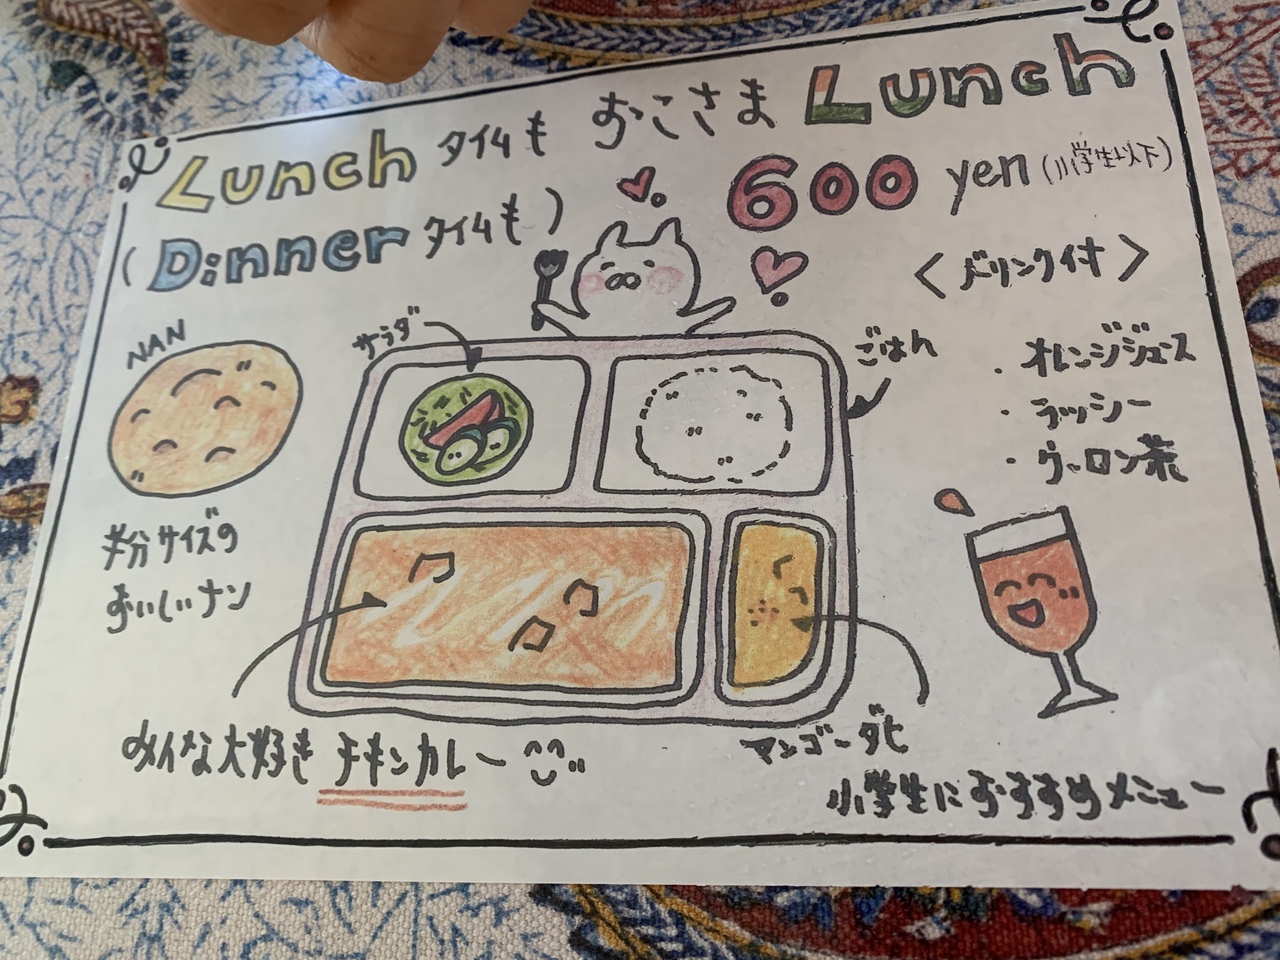 Lunch タイムも おこさま Lunch
(Dinner タイムも)
600 yen (小学生以下)
<ドリンク付>
・オレンジジュース
・ラッシー
・ウーロン茶
NAN
半分サイズの
おいしいナン
サラダ
ごはん
みんな大好き チキンカレー
マンゴーダヒ
小学生におすすめメニュー